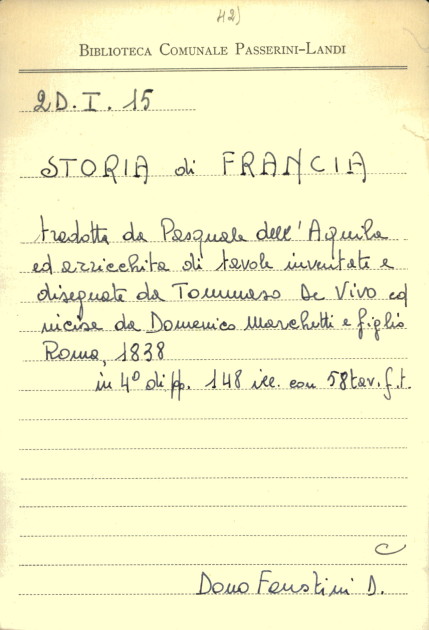 42)
BIBLIOTECA COMUNALE PASSERINI-LANDI
2D. I. 15
STORIA di FRANCIA
tradotta da Pasquale dell'Aquila
ed arricchita di tavole inventate e
disegnate da Tommaso De Vivo ed
incise da Domenico Marchetti e figlio
Roma, 1838
in 4° di pp. 148 ill. con 58 tav. f. t.
Dono Faustini D.